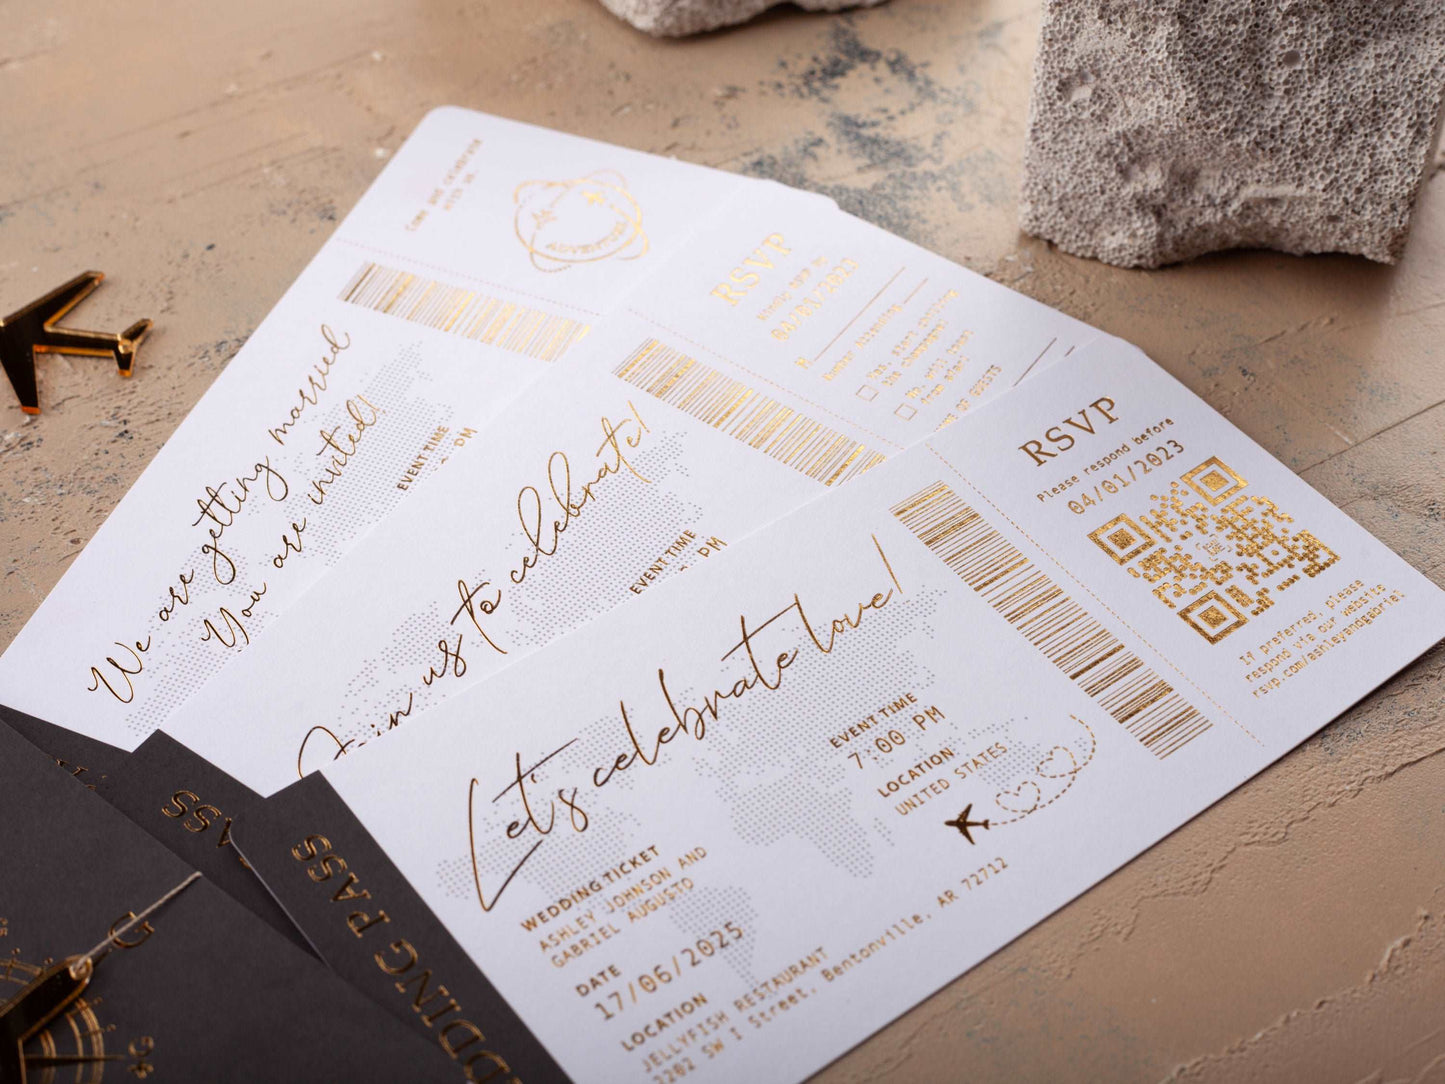 Come and celebrate
with us
ADVENTURE
We are getting married
You are invited!
EVENT TIME
PM
RSVP
04/01/2023
M
Yes,
RSVP
Join us to celebrate!
EVENT TIME
PM
RSVP
Please respond before
04/01/2023
If preferred, please
respond via our website
rsvp.com/ashleyandgabriel
Let's celebrate love!
EVENT TIME
7:00 PM
LOCATION
UNITED STATES
WEDDING TICKET
ASHLEY JOHNSON AND
GABRIEL AUGUSTO
DATE
17/06/2025
LOCATION
JELLYFISH RESTAURANT
2202 SW I Street, Bentonville, AR 72712
PASS
WEDDING PASS
G